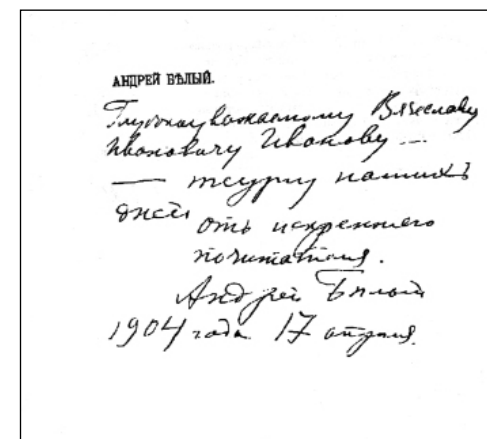 АНДРЕЙ БѢЛЫЙ.
Глубокоуважаемому Вячеславу
Ивановичу Иванову —
— тсурту нашихъ
дней отъ искренняго
почитателя.
Андрей Бѣлый
1904 года 17 апреля.